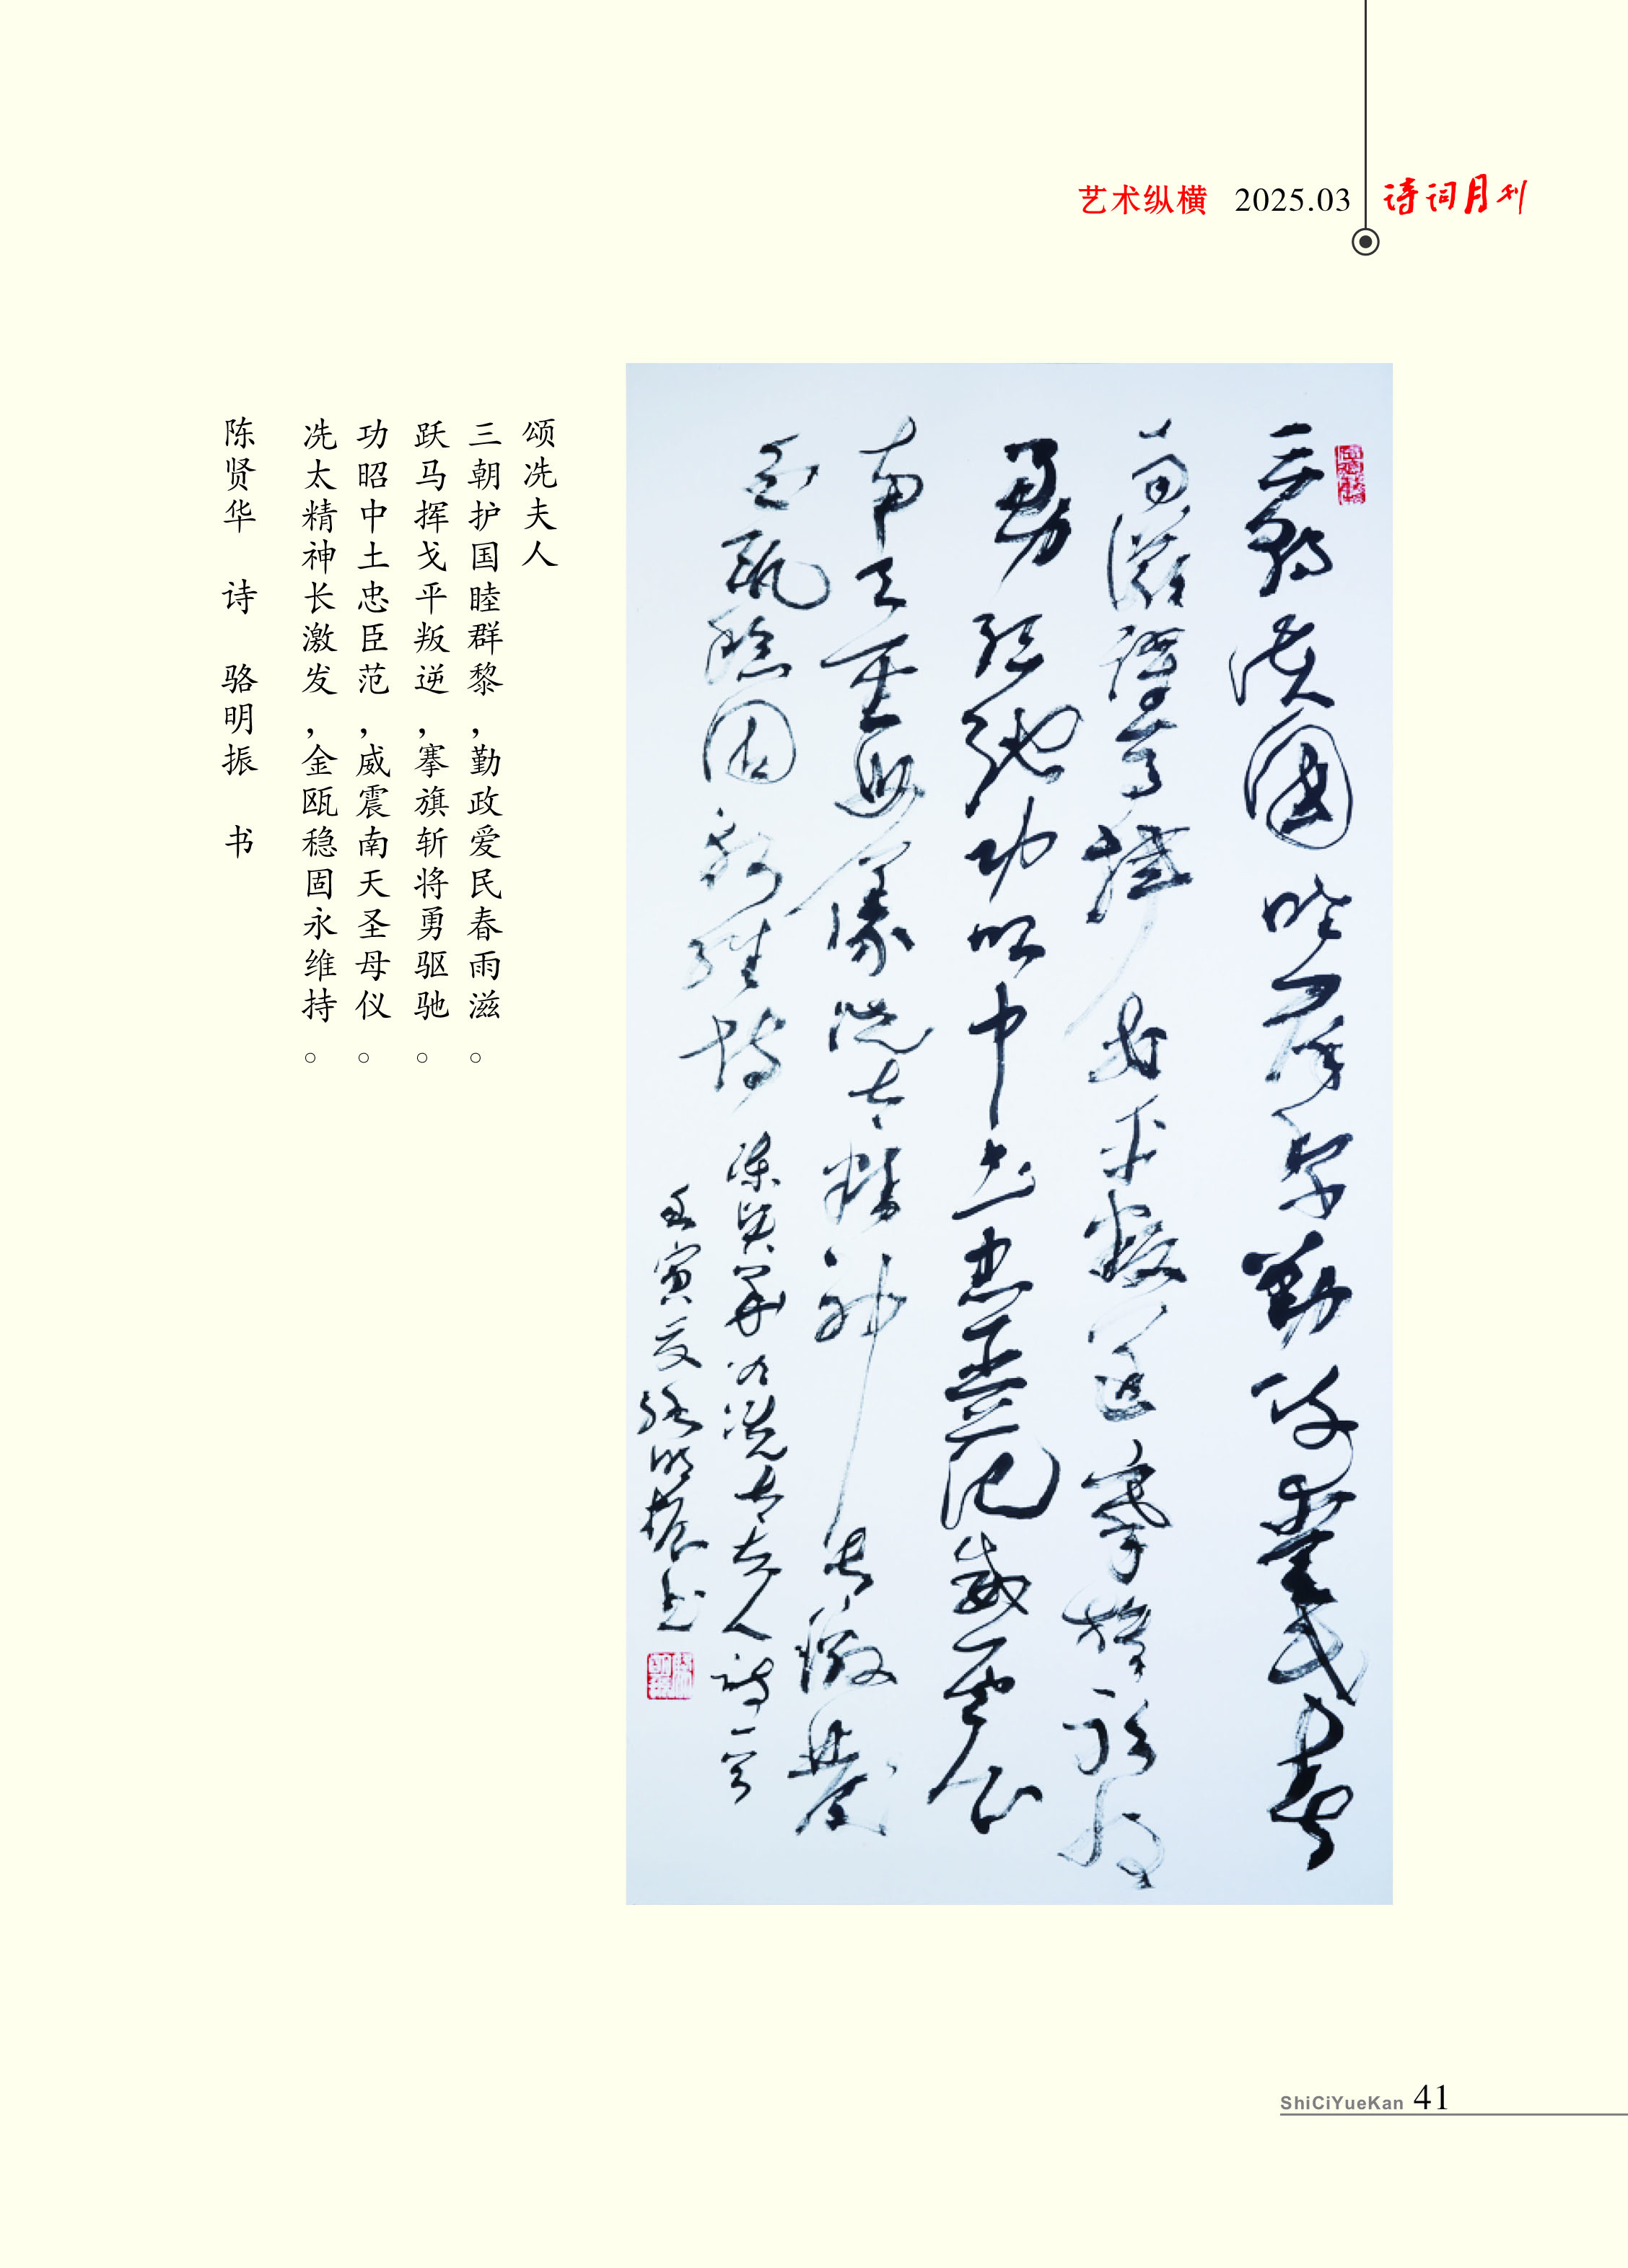 艺术纵横 2025.03 诗词月刊
颂冼夫人
三朝护国睦群黎，勤政爱民春雨滋。
跃马挥戈平叛逆，搴旗斩将勇驱驰。
功昭中土忠臣范，威震南天圣母仪。
冼太精神长激发，金瓯稳固永维持。
陈贤华 诗 骆明振 书
三朝护国睦群黎勤政爱民春
雨滋跃马挥戈平叛逆搴旗斩将
勇驱驰功昭中土忠臣范威震
南天圣母仪冼太精神长激发
金瓯稳固永维持 陈贤华颂冼太夫人诗一首
壬寅夏骆明振书
ShiCiYueKan 41